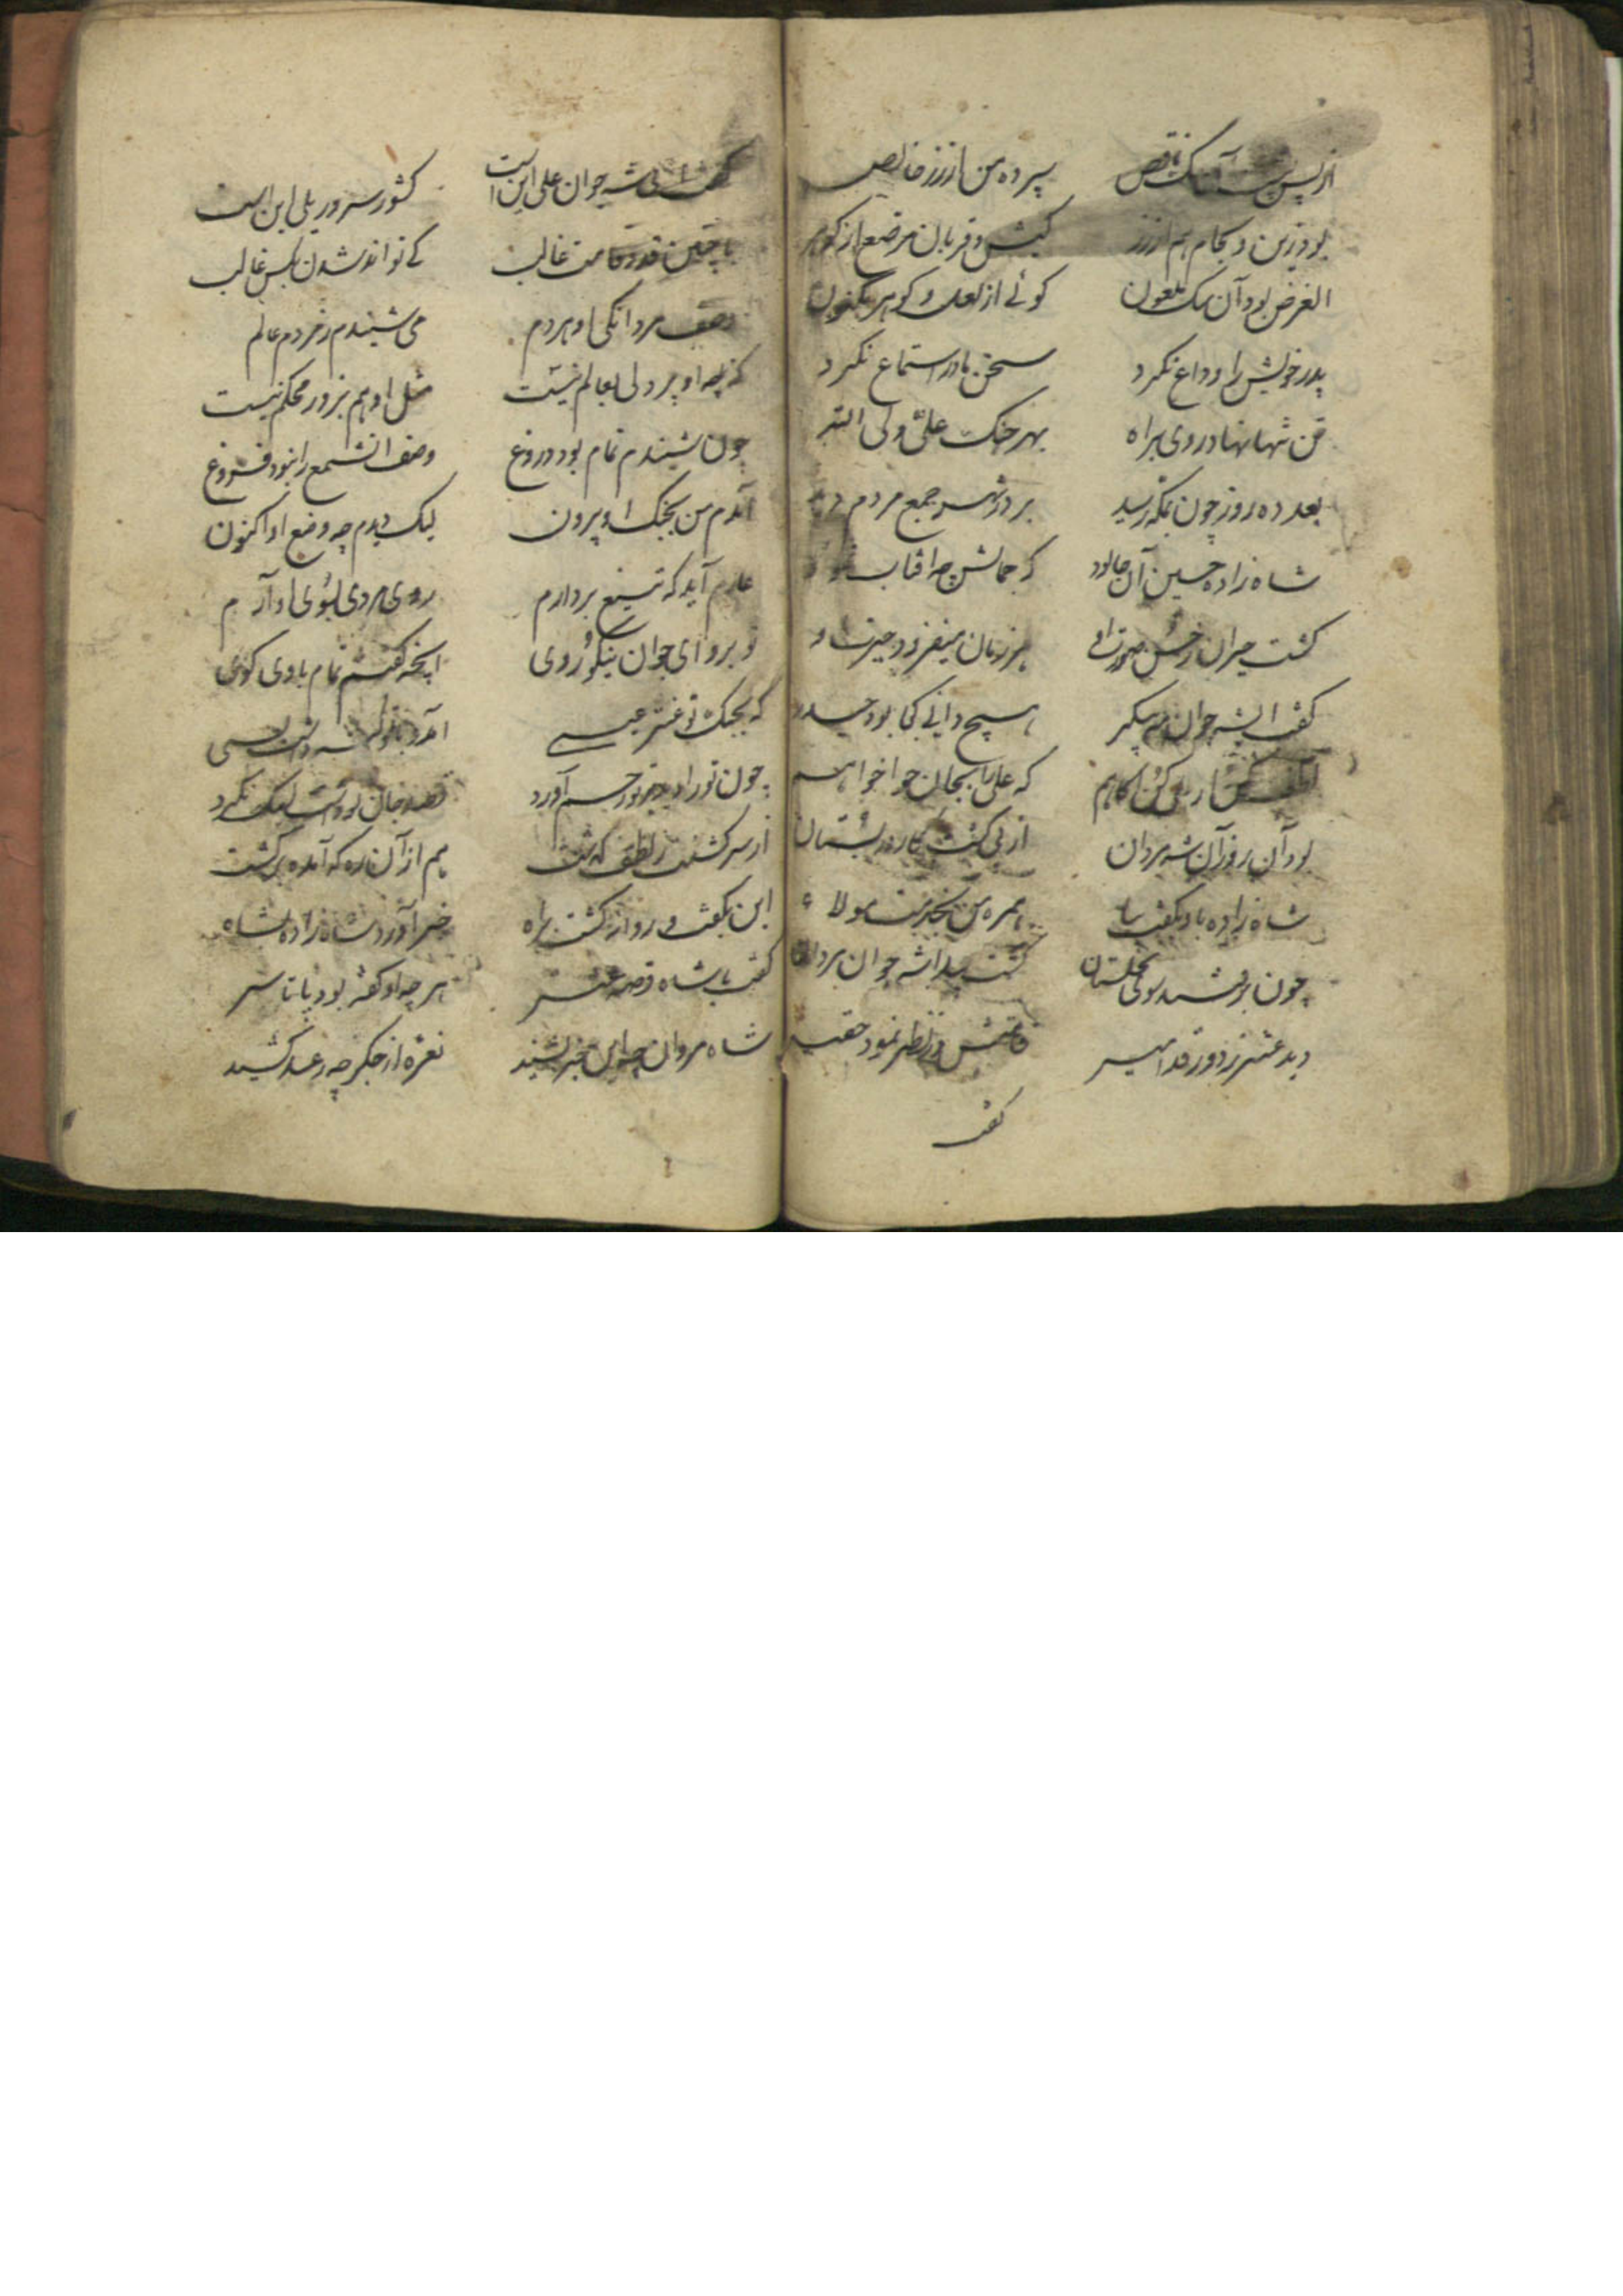 از پس آن سگ ناقص سپر ده من از زر خالص
بود زین و لجام هم از زر کیش و قربان مرصع از گوهر
الغرض بود آن سگ ملعون کوئی از لعل و گوهر
پدر خویش را وداع نکرد سخن مادر استماع نکرد
تن تنها نهاد روی براه بهر جنک علی ولی الله
بعد ده روز چون بمکه رسید بر درش جمع مردم دید
شاه زاده حسین آن جا بود که جمالش چه افتاب
کشت حیران ز حسن صورت او هر زمان میفزود حیرت او
کفت ای جوان مه پیکر هیچ دانی کجا بود حیدر
که علی را بجان هوا خواهم
بود آن روز آن شه مردان از پی کشت کار در بستان
شاه زاده باو بکفت بیا همره من بخدمت مولا
چون سوی نخلستان کشت پیدا شه جوان مردان
دید عنتر ز دور قد امیر قامتش در نظر نمود حقیر
کفت
کفت شه جوان علی این است کشور سرور یلی این است
با چنین قد و قامت غالب کی تواند شدن بکس غالب
وصف مردانکی او هر دم می شنیدم ز مردم عالم
که چه او پر دلی بعالم نیست مثل او هم بزور محکم نیست
چون شنیدم تمام بود دروغ وصف انشمع را نبود فروغ
آمدم من بجنک او بیرون لیک دیدم چه وضع او اکنون
عارم آید که تیغ بردارم روی مردی بسوی او آرم
تو برو ای جوان نیکو روی اینچه کفتم تمام با وی کوی
که بجنک تو عنتر عبسی آمد
چون تو را دید رحم آورد قصد جان نکرد
از سر کشتنت ز لطف کذشت هم از آن ره که آمده برکشت
این بکفت و روانه کشت براه خبر آورد شاه زاده بشاه
کفت با شاه قصه عنتر هر چه او کفته بود پا تا سر
شاه مردان چو این خبر بشنید نعره از جکر چه رعد کشید